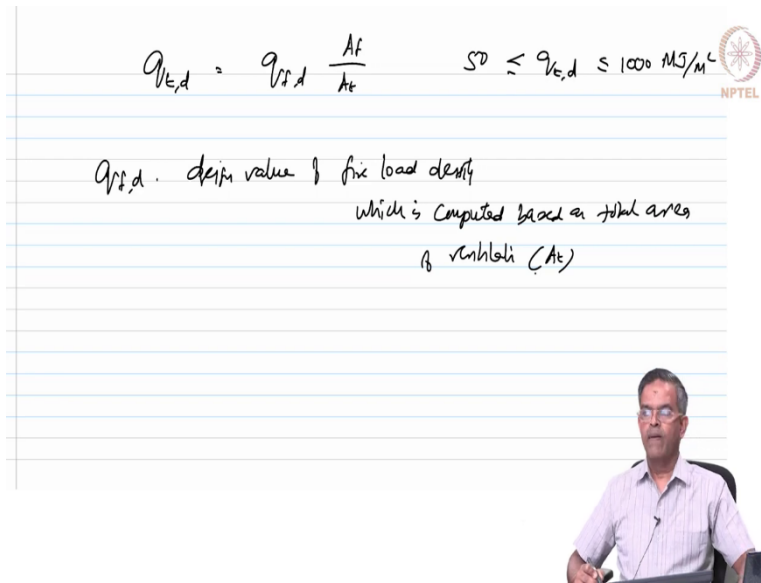 q_{t,d} = q_{f,d} \frac{A_f}{A_t} 50 ≤ q_{t,d} ≤ 1000 MJ/M²
NPTEL
q_{f,d} . design value of fire load density
which is computed based on total area
of (At)